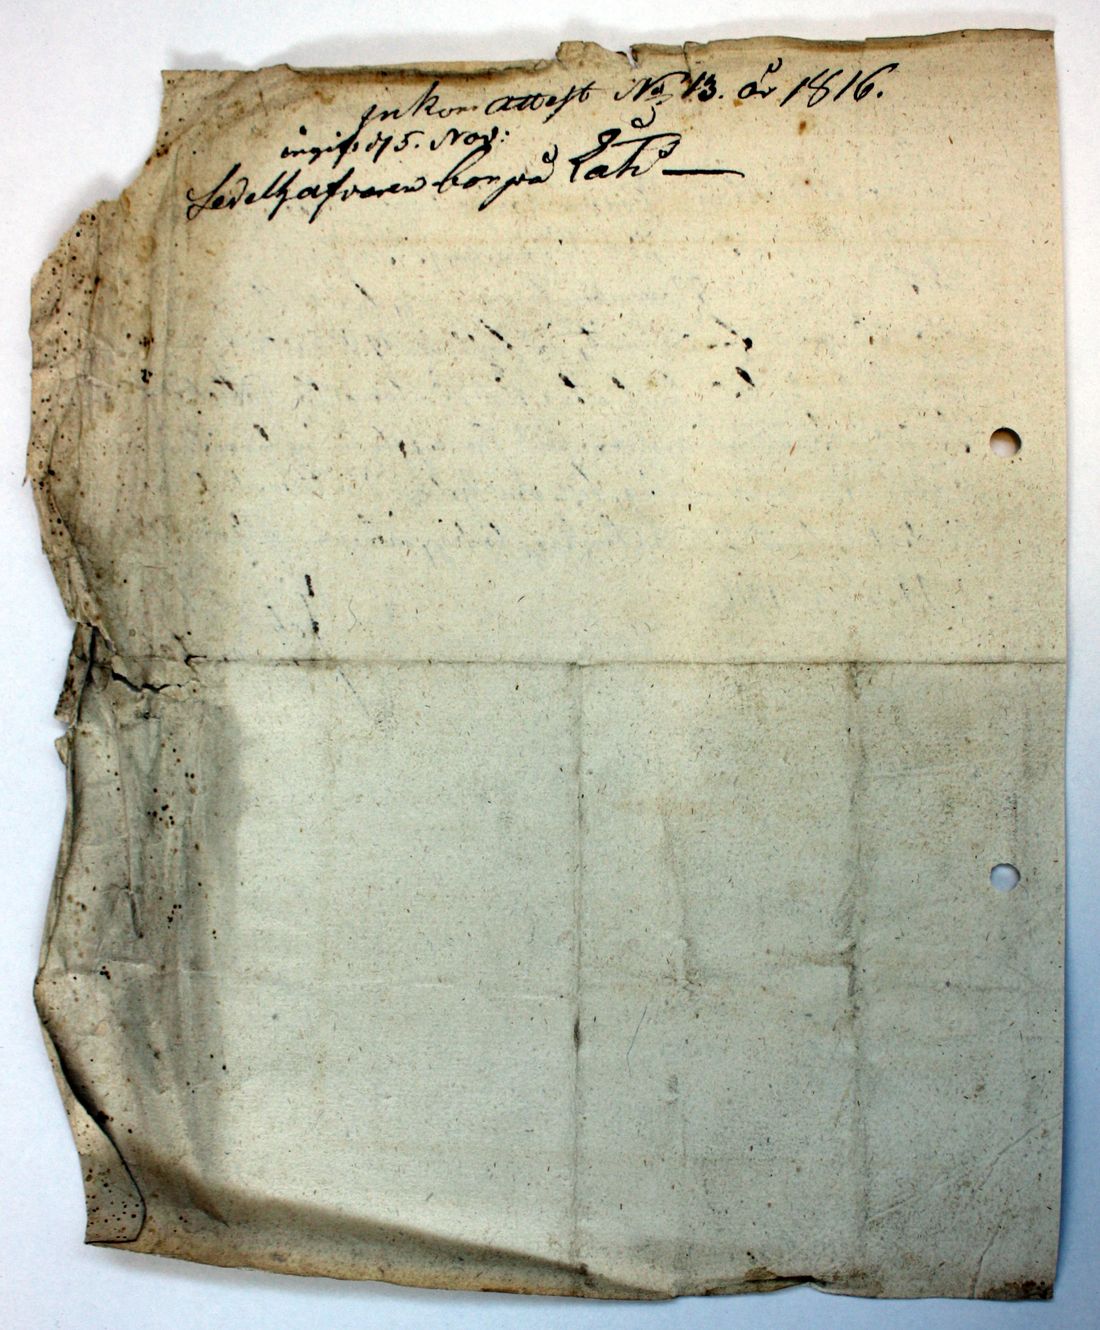 Inkom attest No 13. år 1816.
ingifs d 5. Nov:
Sedelhafvaren bor på Låhs